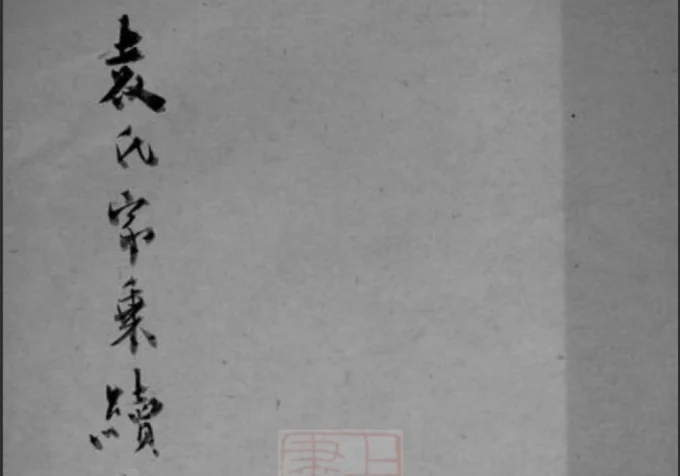 袁氏家乘續